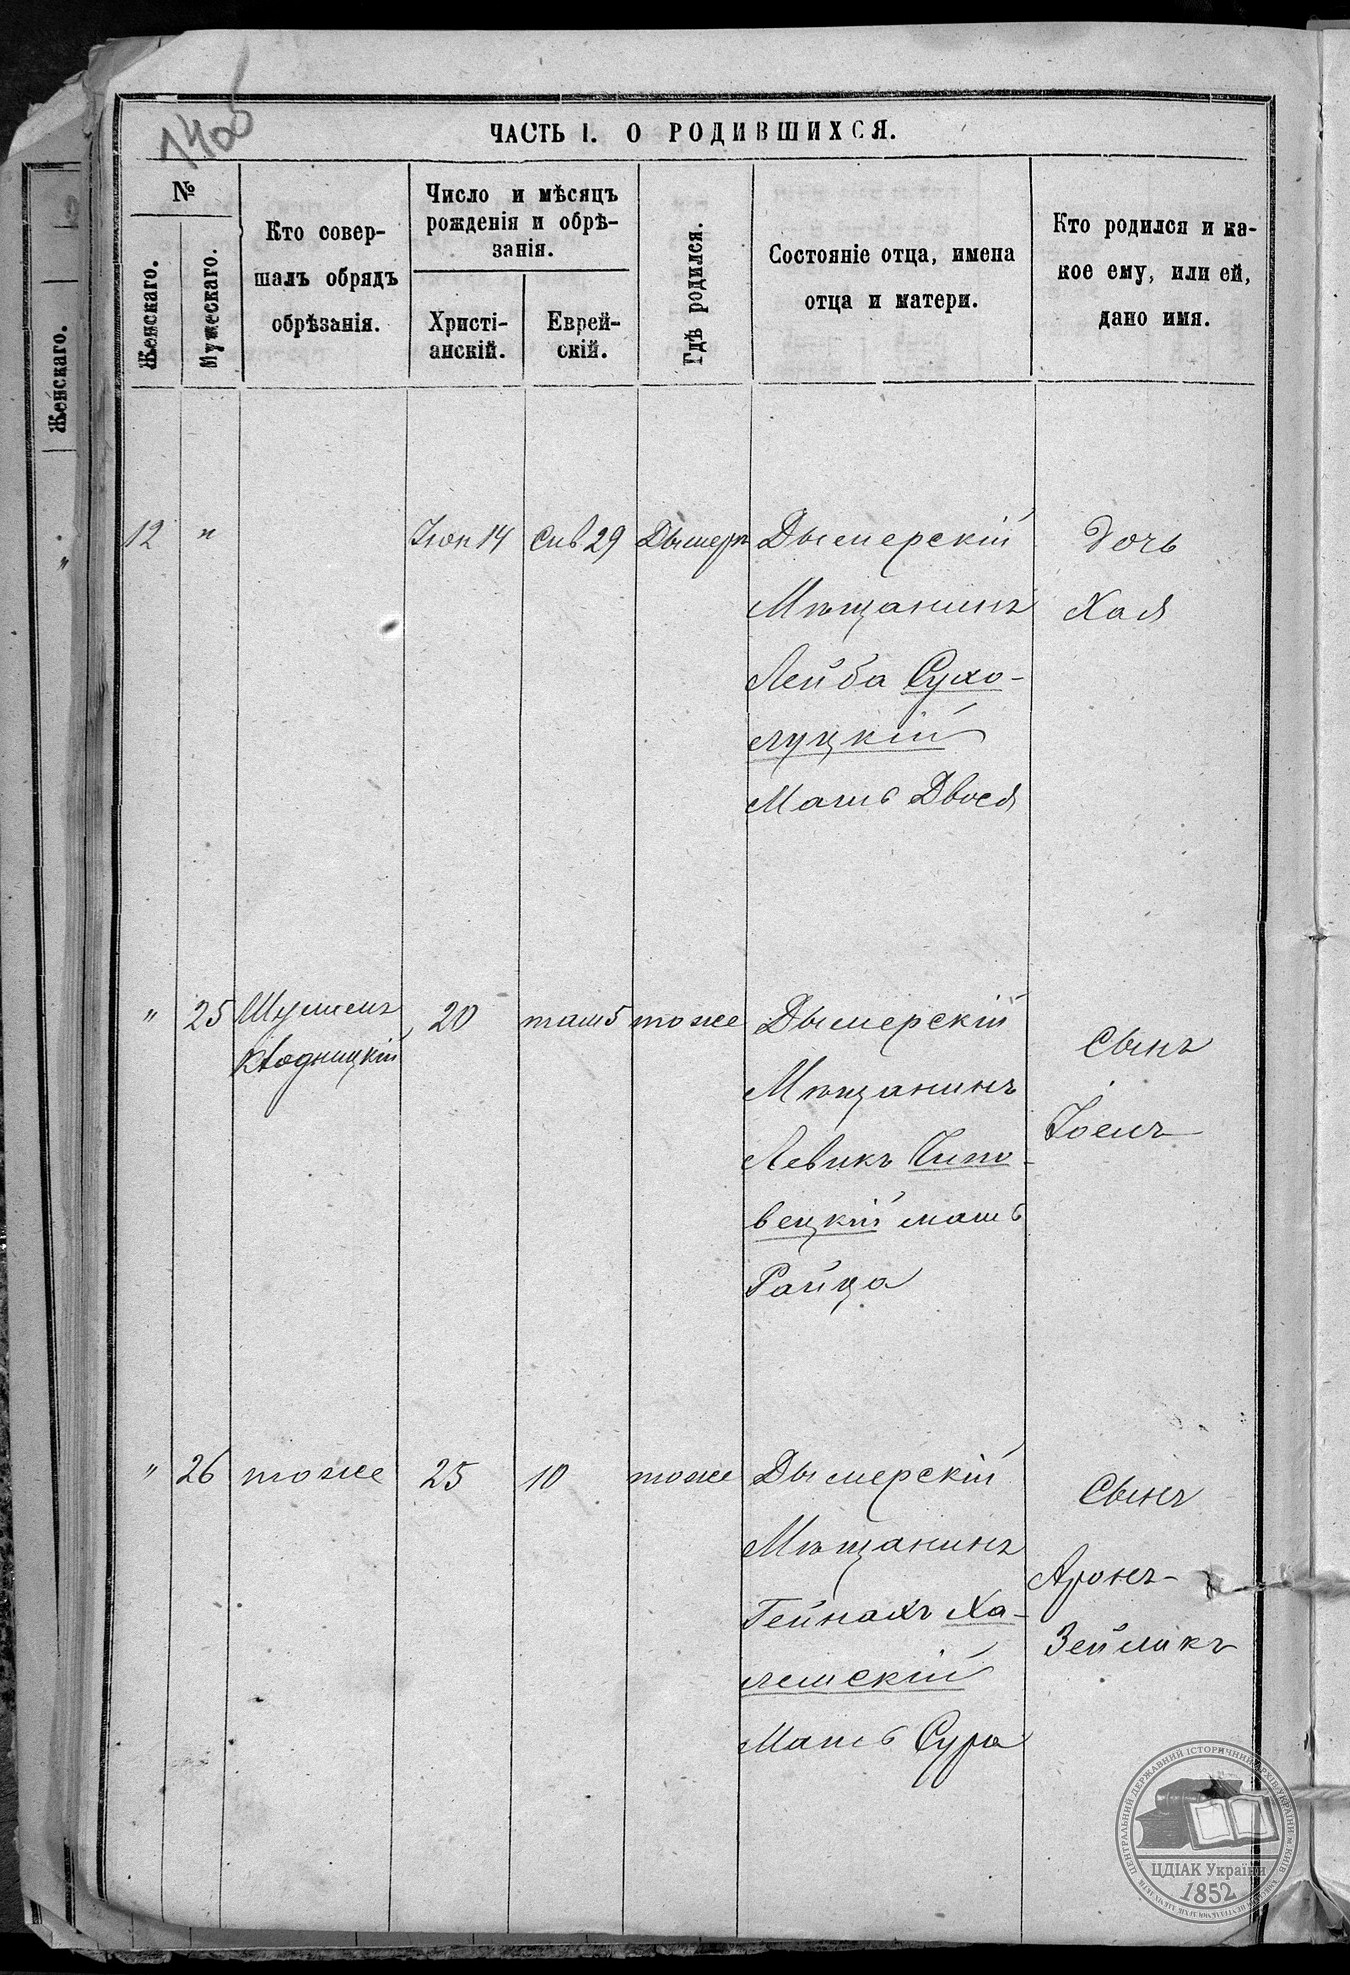 140б
ЧАСТЬ I. О РОДИВШИХСЯ.
№
Женскаго.
Мужескаго.
Кто совер-
шалъ обрядъ
обрѣзанія.
Число и мѣсяцъ
рожденія и обрѣ-
занія.
Христі-
анскій.
Еврей-
скій.
Гдѣ родился.
Состояніе отца, имена
отца и матери.
Кто родился и ка-
кое ему, или ей,
дано имя.
Женскаго.
12 " Іюн 14 Сив 29 Дымеръ Дымерскій
Мѣщанинъ
Лейба Сухо-
луцкій
Мать Двося
дочь
Хая
" 25 Шулимъ
20 там 5 тоже Дымерскій
Мѣщанинъ
Левикъ Липо-
вецкій мать
Райца
Сынъ
Іоель
" 26 тоже 25 10 тоже Дымерскій
Мѣщанинъ
Гейнахъ Ха-
лемскій
Мать Сура
Сынъ
Аронъ-
Зейликъ
ЦЕНТРАЛЬНИЙ ДЕРЖАВНИЙ ІСТОРИЧНИЙ АРХІВ УКРАЇНИ м. КИЇВ
ЦДІАК України
1852